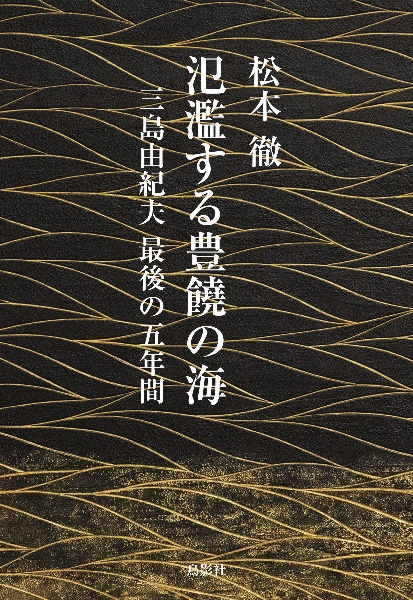 松本 徹
氾濫する豊饒の海
三島由紀夫 最後の五年間
鳥影社